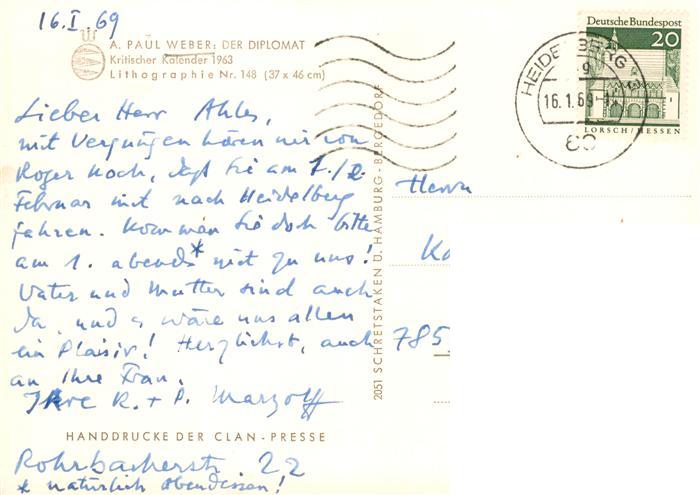 16. I. 69
A. PAUL WEBER: DER DIPLOMAT
Kritischer Kalender 1963
Lithographie Nr. 148 (37 x 46 cm)
Lieber Herr Ahles,
mit Vergnügen hören wir von
Roger Koch, daß Sie am 1./2.
Februar mit nach Heidelberg
fahren. Kommen Sie doch bitte
am 1. abends* mit zu uns!
Vater und Mutter sind auch
da, und es wäre uns allen
ein Plaisir! Herzlichst, auch
an Ihre Frau,
Ihre R. + P. Marzolff
HANDDRUCKE DER CLAN-PRESSE
Rohrbacherstr. 22
* natürlich Abendessen!
2051 SCHRETSTAKEN U. HAMBURG-BERGEDORF
Deutsche Bundespost
20
LORSCH/HESSEN
HEIDELBERG
16.1.69
Herrn
Ko
785